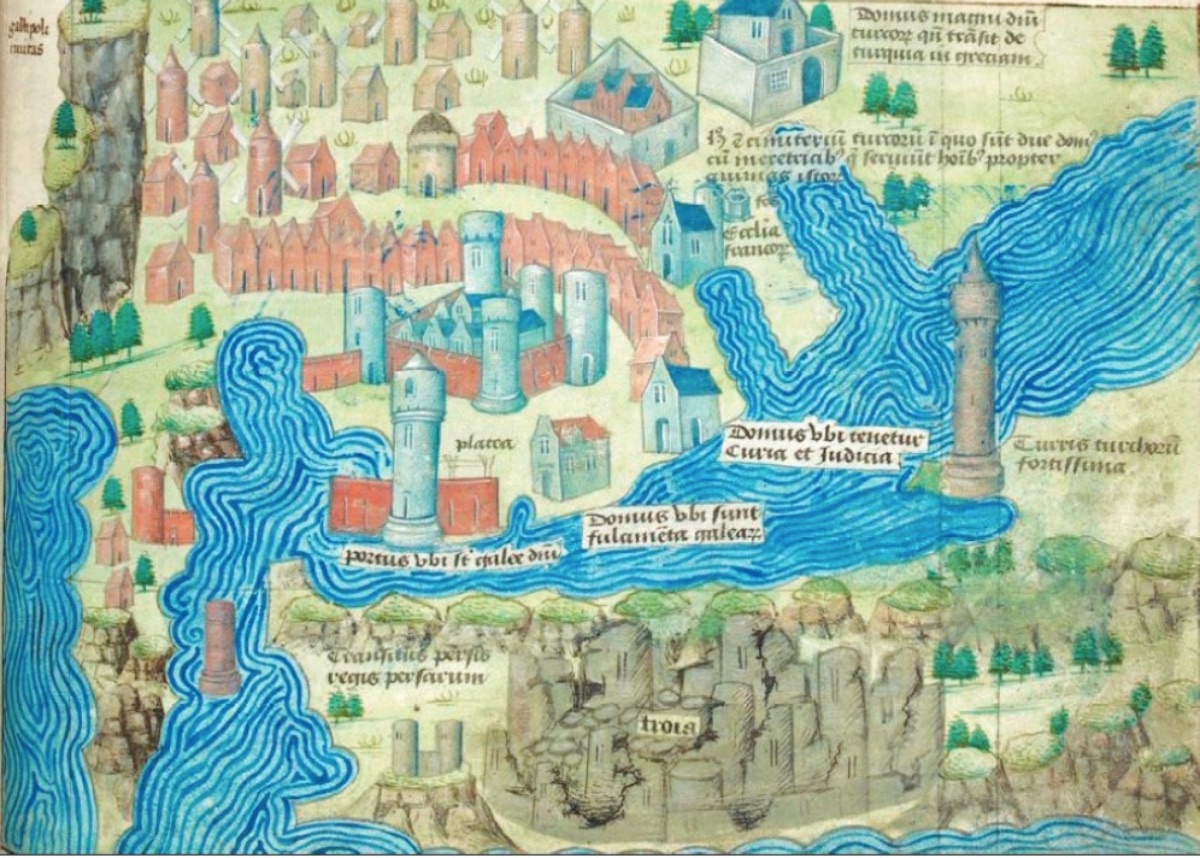 gallipoli
ciuitas
Domus magni dñi
turcoꝝ qñ trãsit de
turquia in greciam
H̃ ẽ cimiteriũ turcoꝝ ĩ quo sũt due dom⁹
cũ meretricib⁹ q̃ seruiũt hoĩb⁹ propter
istoꝝ
fos
Ecclĩa
francoꝝ
platea
Domus vbi tenetur
Curia et Judicia
Turris turchorũ
fortissima
Domus vbi sunt
fulamẽta galeaꝝ
portus vbi st̃ galee dñi
Transitus persis
regis persarum
troia